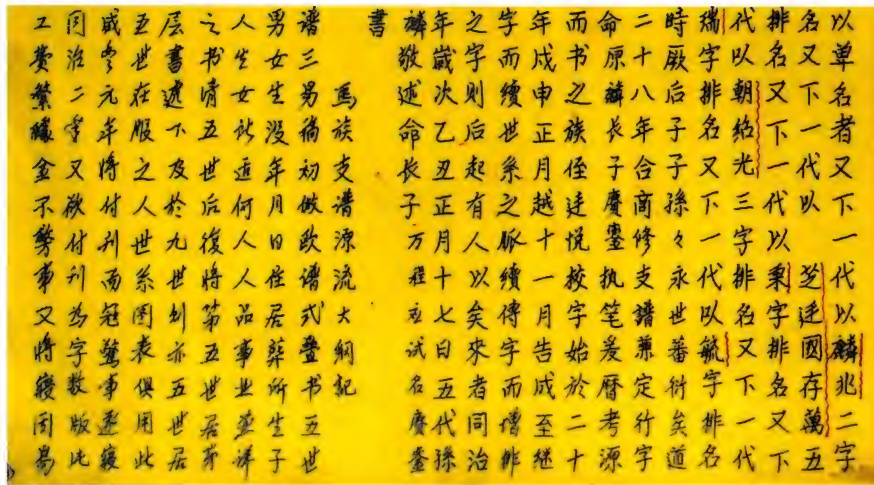 以单名者又下一代以麟兆二字
名又下一代以芝廷國存萬五
排名又下一代以秉字排名又下
代以朝紹光三字排名又下一代
瑞字排名又下一代以毓字排名
時厥后子子孫々永世蕃衍矣道
二十八年合商修支譜兼定行字
命原麟长子賡執笔爰曆考源
而书之族侄廷悦按字始於二十
年戊申正月越十一月告成至継
字而續世系之脈續傳字而增排
之字則后起有人以矣來者同治
年歲次乙丑正月十七日五代孫
麟敬述命长子方程应试名賡奎
書
馬族支谱源流大綱記
谱三男初倣欧谱式叠书五世
男女生没年月日住居葬所生子
人生女适何人人品事业並详
之书请五世后復将第五世居第
层書递下及於九世亦五世居
五世在服之人世系图表俱用此
咸豊元年将付刊而冠警事遂寝
同治二年又欲付刊为字数版此
工费繁金不敷事又将寝因為